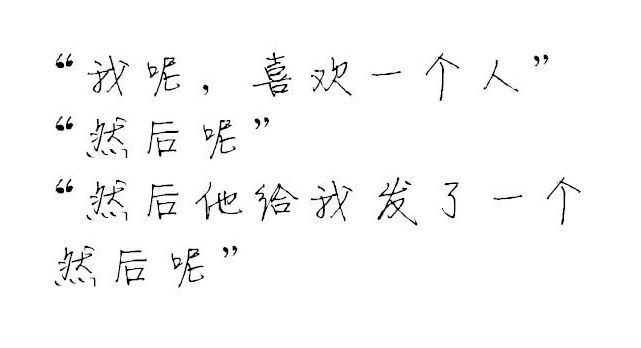 “我呢，喜欢一个人”
“然后呢”
“然后他给我发了一个
然后呢”